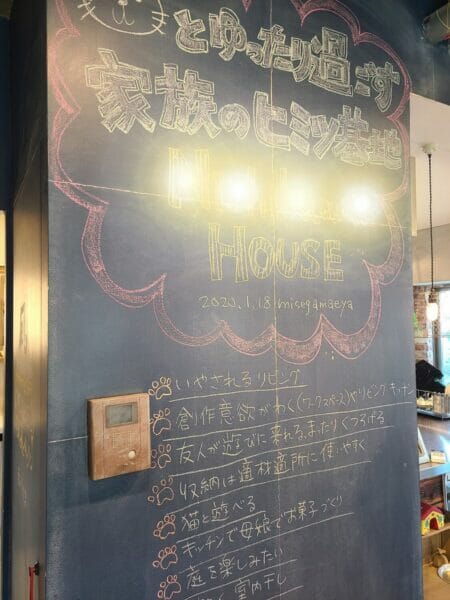 とゆったり過ごす
家族のヒミツ基地
HOUSE
2020.1.18 misegamaeya
いやされるリビング
創作意欲がわく(ワークスペース)やリビング・キッチン
友人が遊びに来れる。またりくつろげる
収納は適材適所に使いやすく
猫と遊べる
キッチンで母娘でお菓子づくり
庭を楽しみたい
室内干し